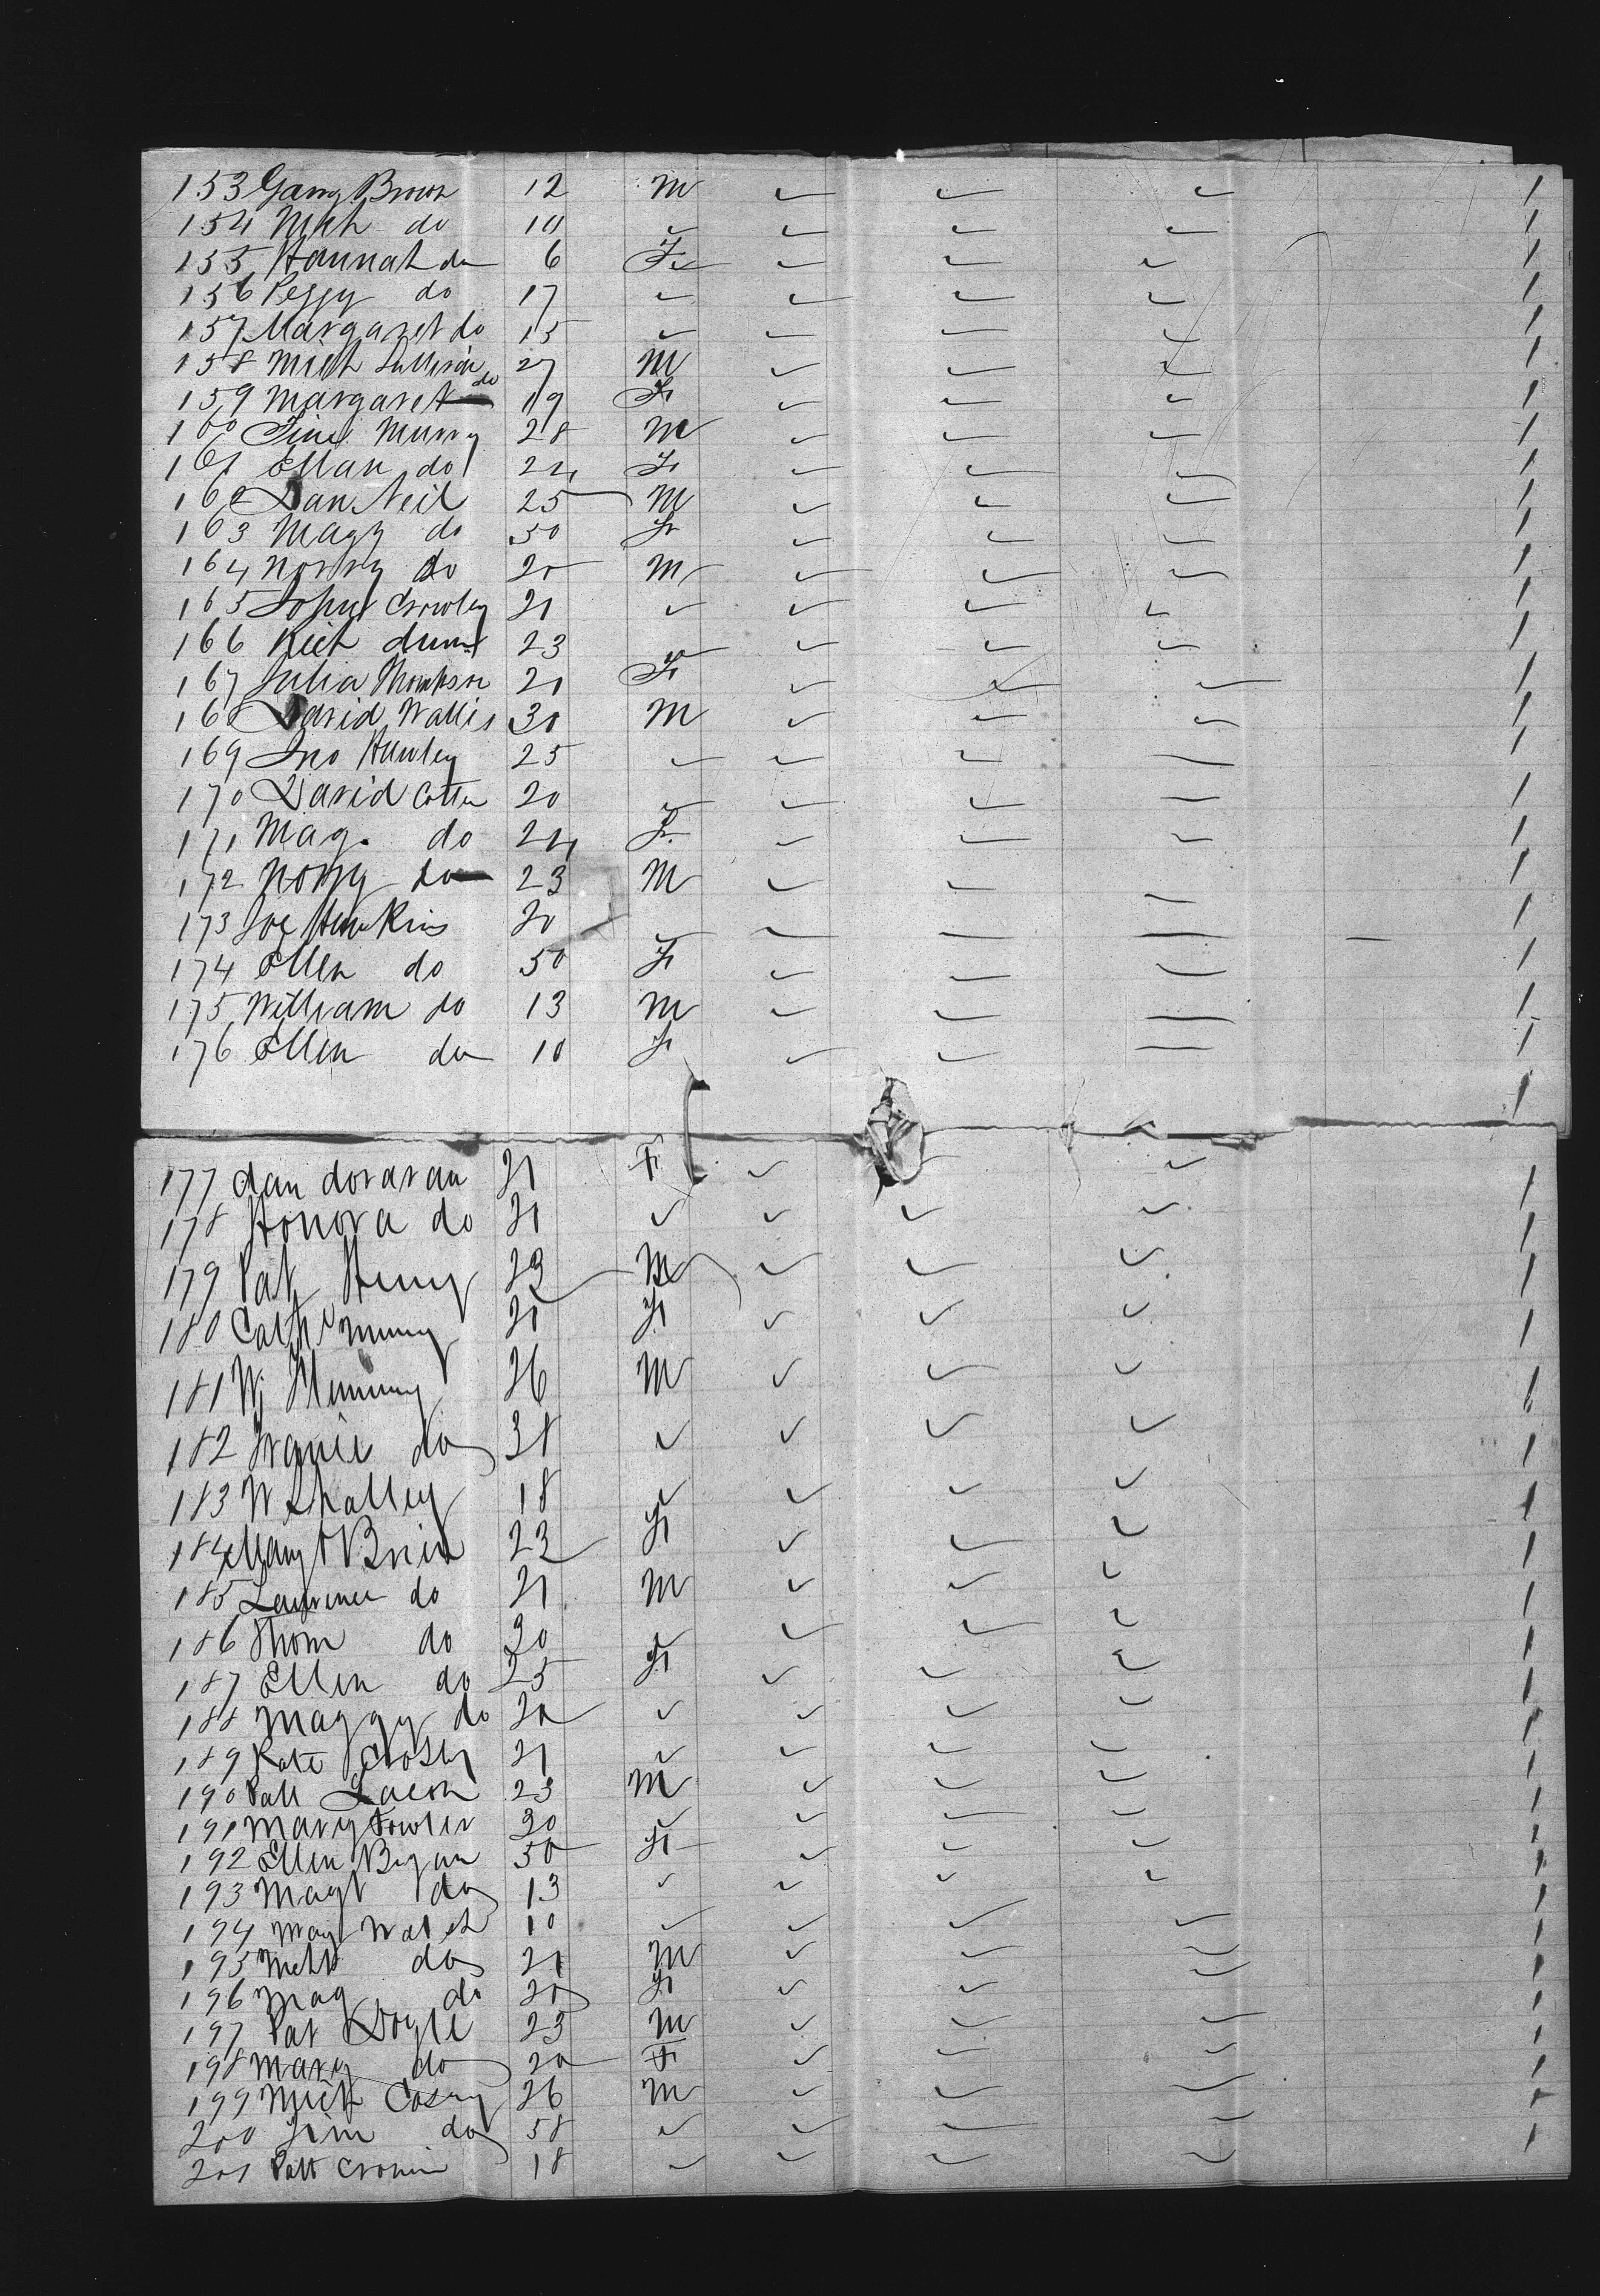 153 Garry Brown 12 M 1
154 Mich do 10 1
155 Hannah do 6 F 1
156 Peggy do 17 1
157 Margaret do 15 1
158 Mich Sullivan 27 M 1
159 Margaret do 19 F 1
160 Murry 28 M 1
161 Ellan do 24 F 1
162 Dan Neil 25 M 1
163 Magy do 50 F 1
164 Norry do 20 M 1
165 John Crowley 21 1
166 23 1
167 Julia Thompson 21 F 1
168 David Wallis 30 M 1
169 Jno Hurley 25 1
170 David Cotter 20 1
171 Mag. do 24 F 1
172 Norry do 23 M 1
173 Joe 20 1
174 Ellen do 50 F 1
175 William do 13 M 1
176 Ellen do 10 F 1
1
177 dan donavan 21 F 1
178 Honora do 21 1
179 Pat 23 M 1
180 Cath 21 F 1
181 26 M 1
182 do 38 1
183 18 1
184 Mary OBrien 23 F 1
185 Lawrence do 21 M 1
186 Thom do 20 1
187 Ellen do 25 F 1
188 Maggy do 20 1
189 Kate 21 1
190 Patt 23 M 1
191 Mary Fowler 30 1
192 Ellen Bryan 50 F 1
193 Magt do 13 1
194 May Walsh 10 1
195 do 21 M 1
196 Mag do 20 F 1
197 Pat Doyle 23 M 1
198 Mary do 20 F 1
199 Mich Casey 26 M 1
200 Jim do 58 1
201 Patt Cronin 18